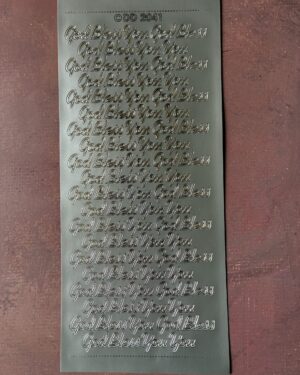 CDO 2041
God Bless You God Bless
God Bless You You
God Bless You God Bless
God Bless You You
God Bless You God Bless
God Bless You You
God Bless You God Bless
God Bless You You
God Bless You God Bless
God Bless You You
God Bless You God Bless
God Bless You You
God Bless You God Bless
God Bless You You
God Bless You God Bless
God Bless You You
God Bless You God Bless
God Bless You You
God Bless You God Bless
God Bless You You